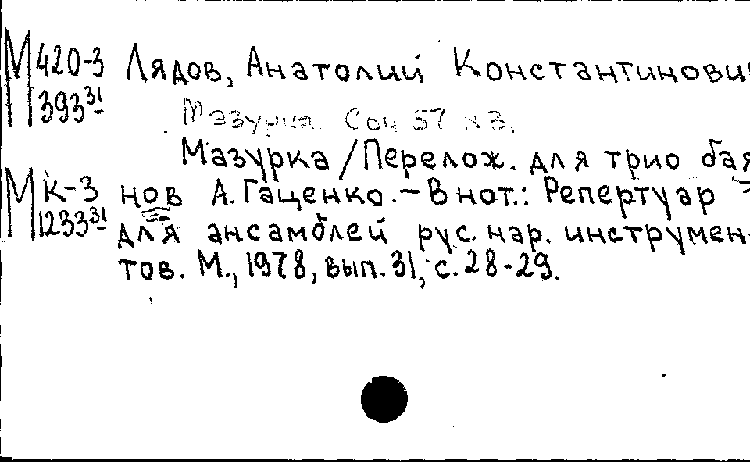 М 420-3 Лядов, Анатолий Константинович
393 31 Мазурка. Соч 57 №3.
Мазурка / Перелож. для трио бая-
М К-3 нов А. Гаценко. - В нот.: Репертуар
1233 31 для ансамблей рус. нар. инструмен-
тов. М., 1978, вып. 31, с. 28-29.